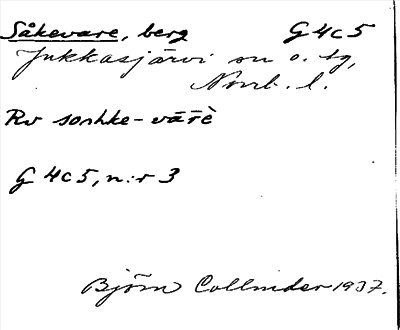 Såkevare, berg G 4c5
Jukkasjärvi sn o. tg,
Norrb. l.
Rv soahke-vārè
G 4c5, n:r 3
Björn Collinder 1937.